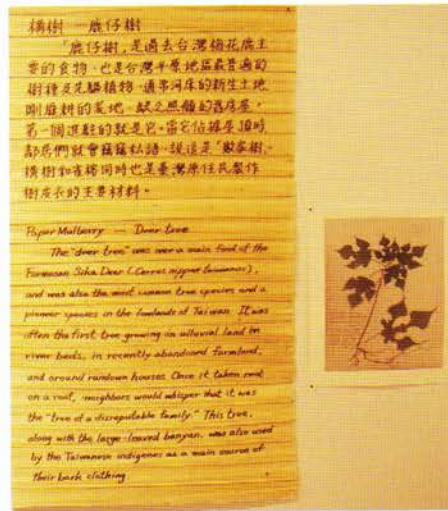 構樹 — 鹿仔樹
「鹿仔樹」是過去台灣梅花鹿主
要的食物,也是台灣平原地區最普遍的
樹種及先驅植物。通常河床的新生土地、
剛廢耕的荒地、缺乏照顧的舊房屋,
第一個進駐的就是它。當它佔據屋頂時,
鄰居們就會竊竊私語,說這是「敗家樹」。
構樹和雀榕同時也是臺灣原住民製作
樹皮衣的主要材料。
Paper Mulberry — Deer tree
The "deer tree" was once a main food of the
Formosan Sika Deer (Cervus nippon taiouanus),
and was also the most common tree species and a
pioneer species in the lowlands of Taiwan. It was
often the first tree growing on alluvial land in
river beds, in recently abandoned farmland,
and around rundown houses. Once it taken root
on a roof, neighbors would whisper that it was
the "tree of a disreputable family." This tree,
along with the large-leaved banyan, was also used
by the Taiwanese indigenes as a main source of
their bark clothing.